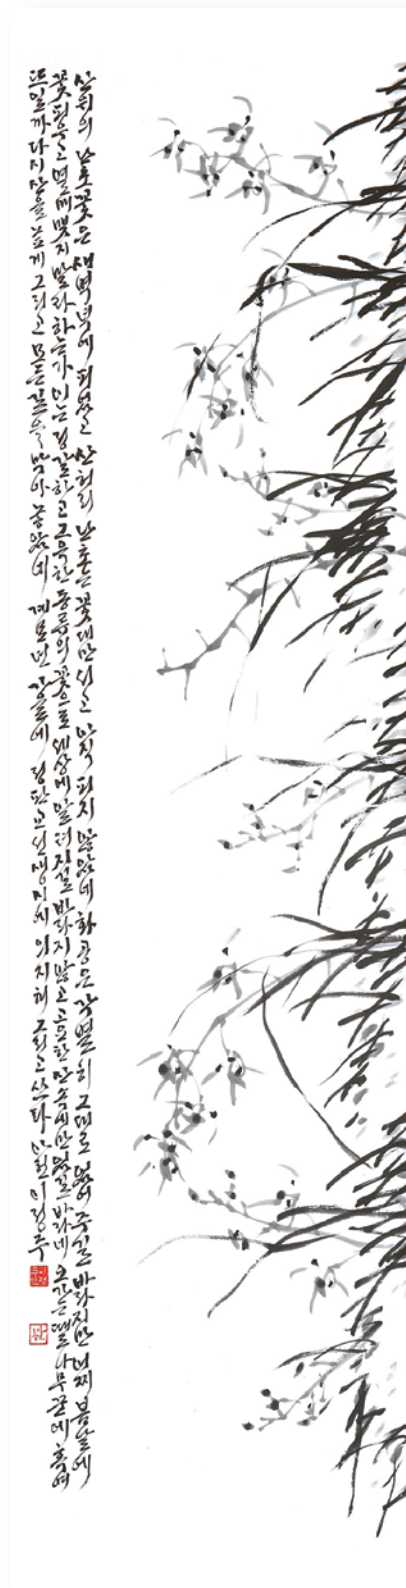 산위의 난초꽃은 새벽녘에 피었고 산허리 난초는 꽃대만 섰고 아직 피지 않았네 화공은 각별히 그대로 있어 주길 바라지만 어찌 봄날에
꽃 피우고 열매 맺지 말라 하는가 이는 정갈하고 그윽한 동류의 꽃으로 세상에 알려지길 바라지 않고 그윽한 산속에만 있길 바라네 오가는 땔나무꾼에 혹여
뜨일까 다시 산을 높게 그리고 모든 길을 막아 놓았네 계묘년 가을에 정판교 선생 시에 의지해 그리고 쓰다 이정주